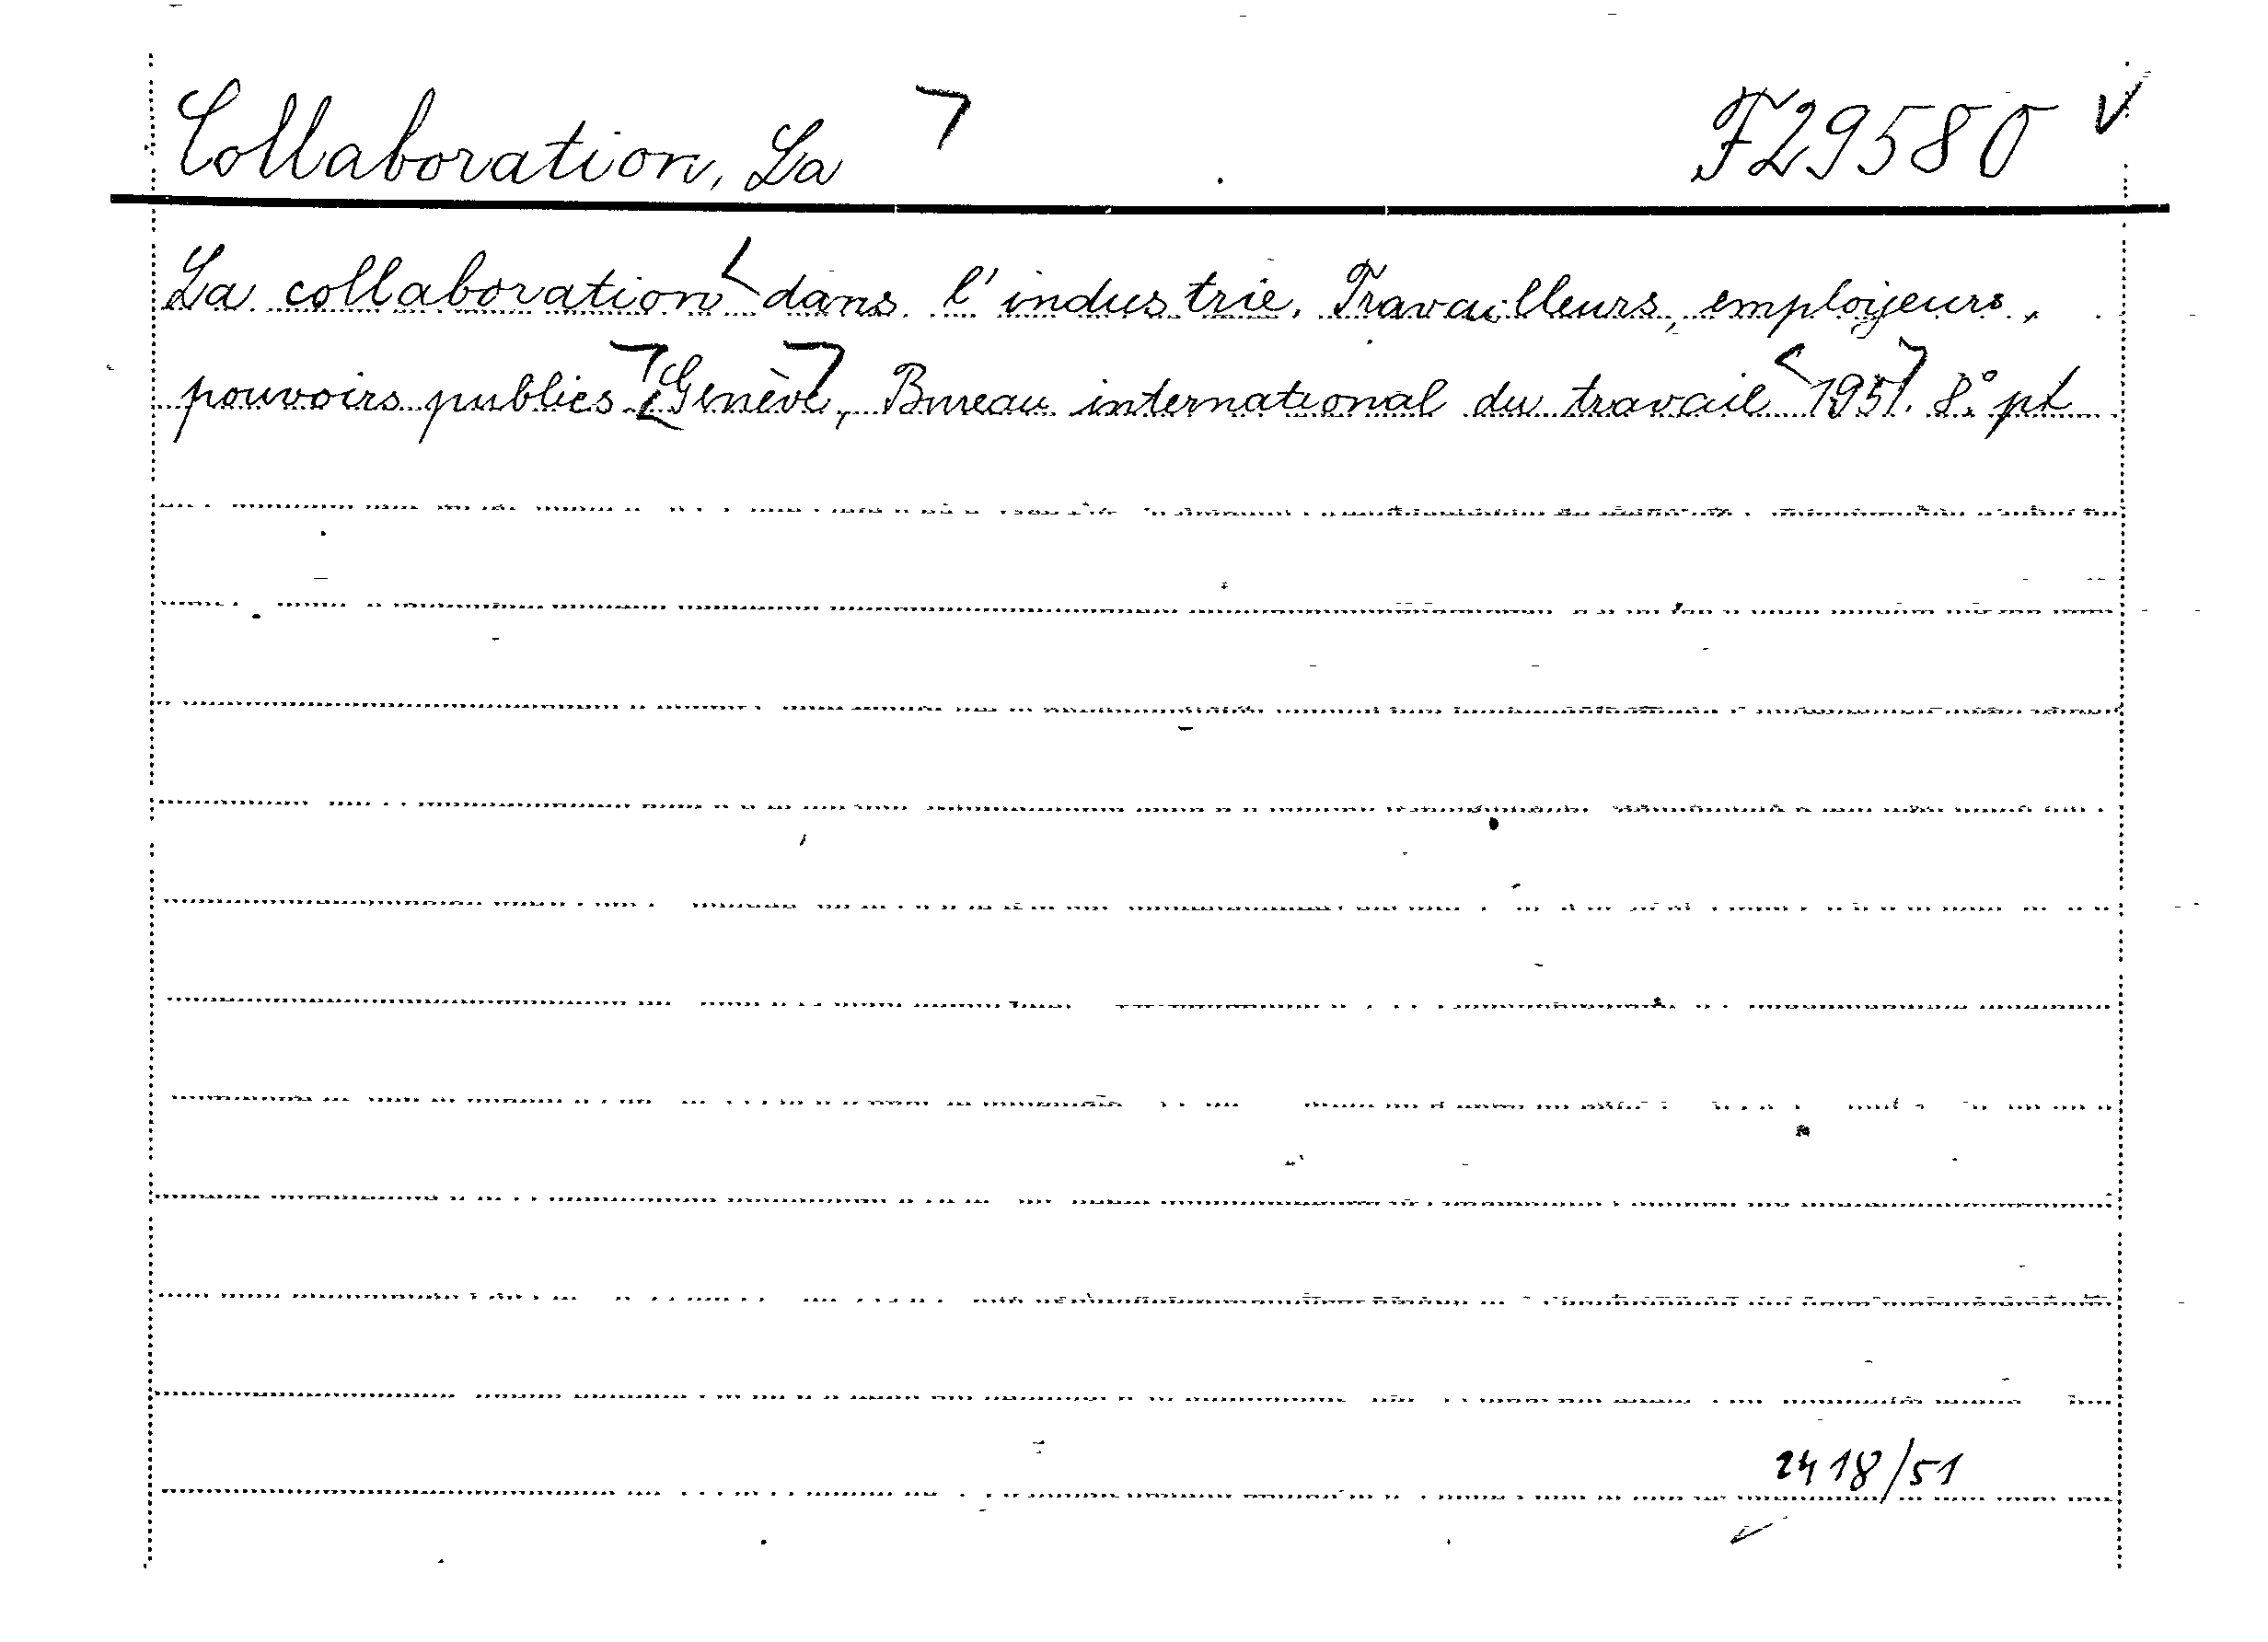 Collaboration, La F29580
La collaboration dans l'industrie. Travailleurs, employeurs,
pouvoirs publics Genève, Bureau international du travail 1951. 8° pt
2418/51